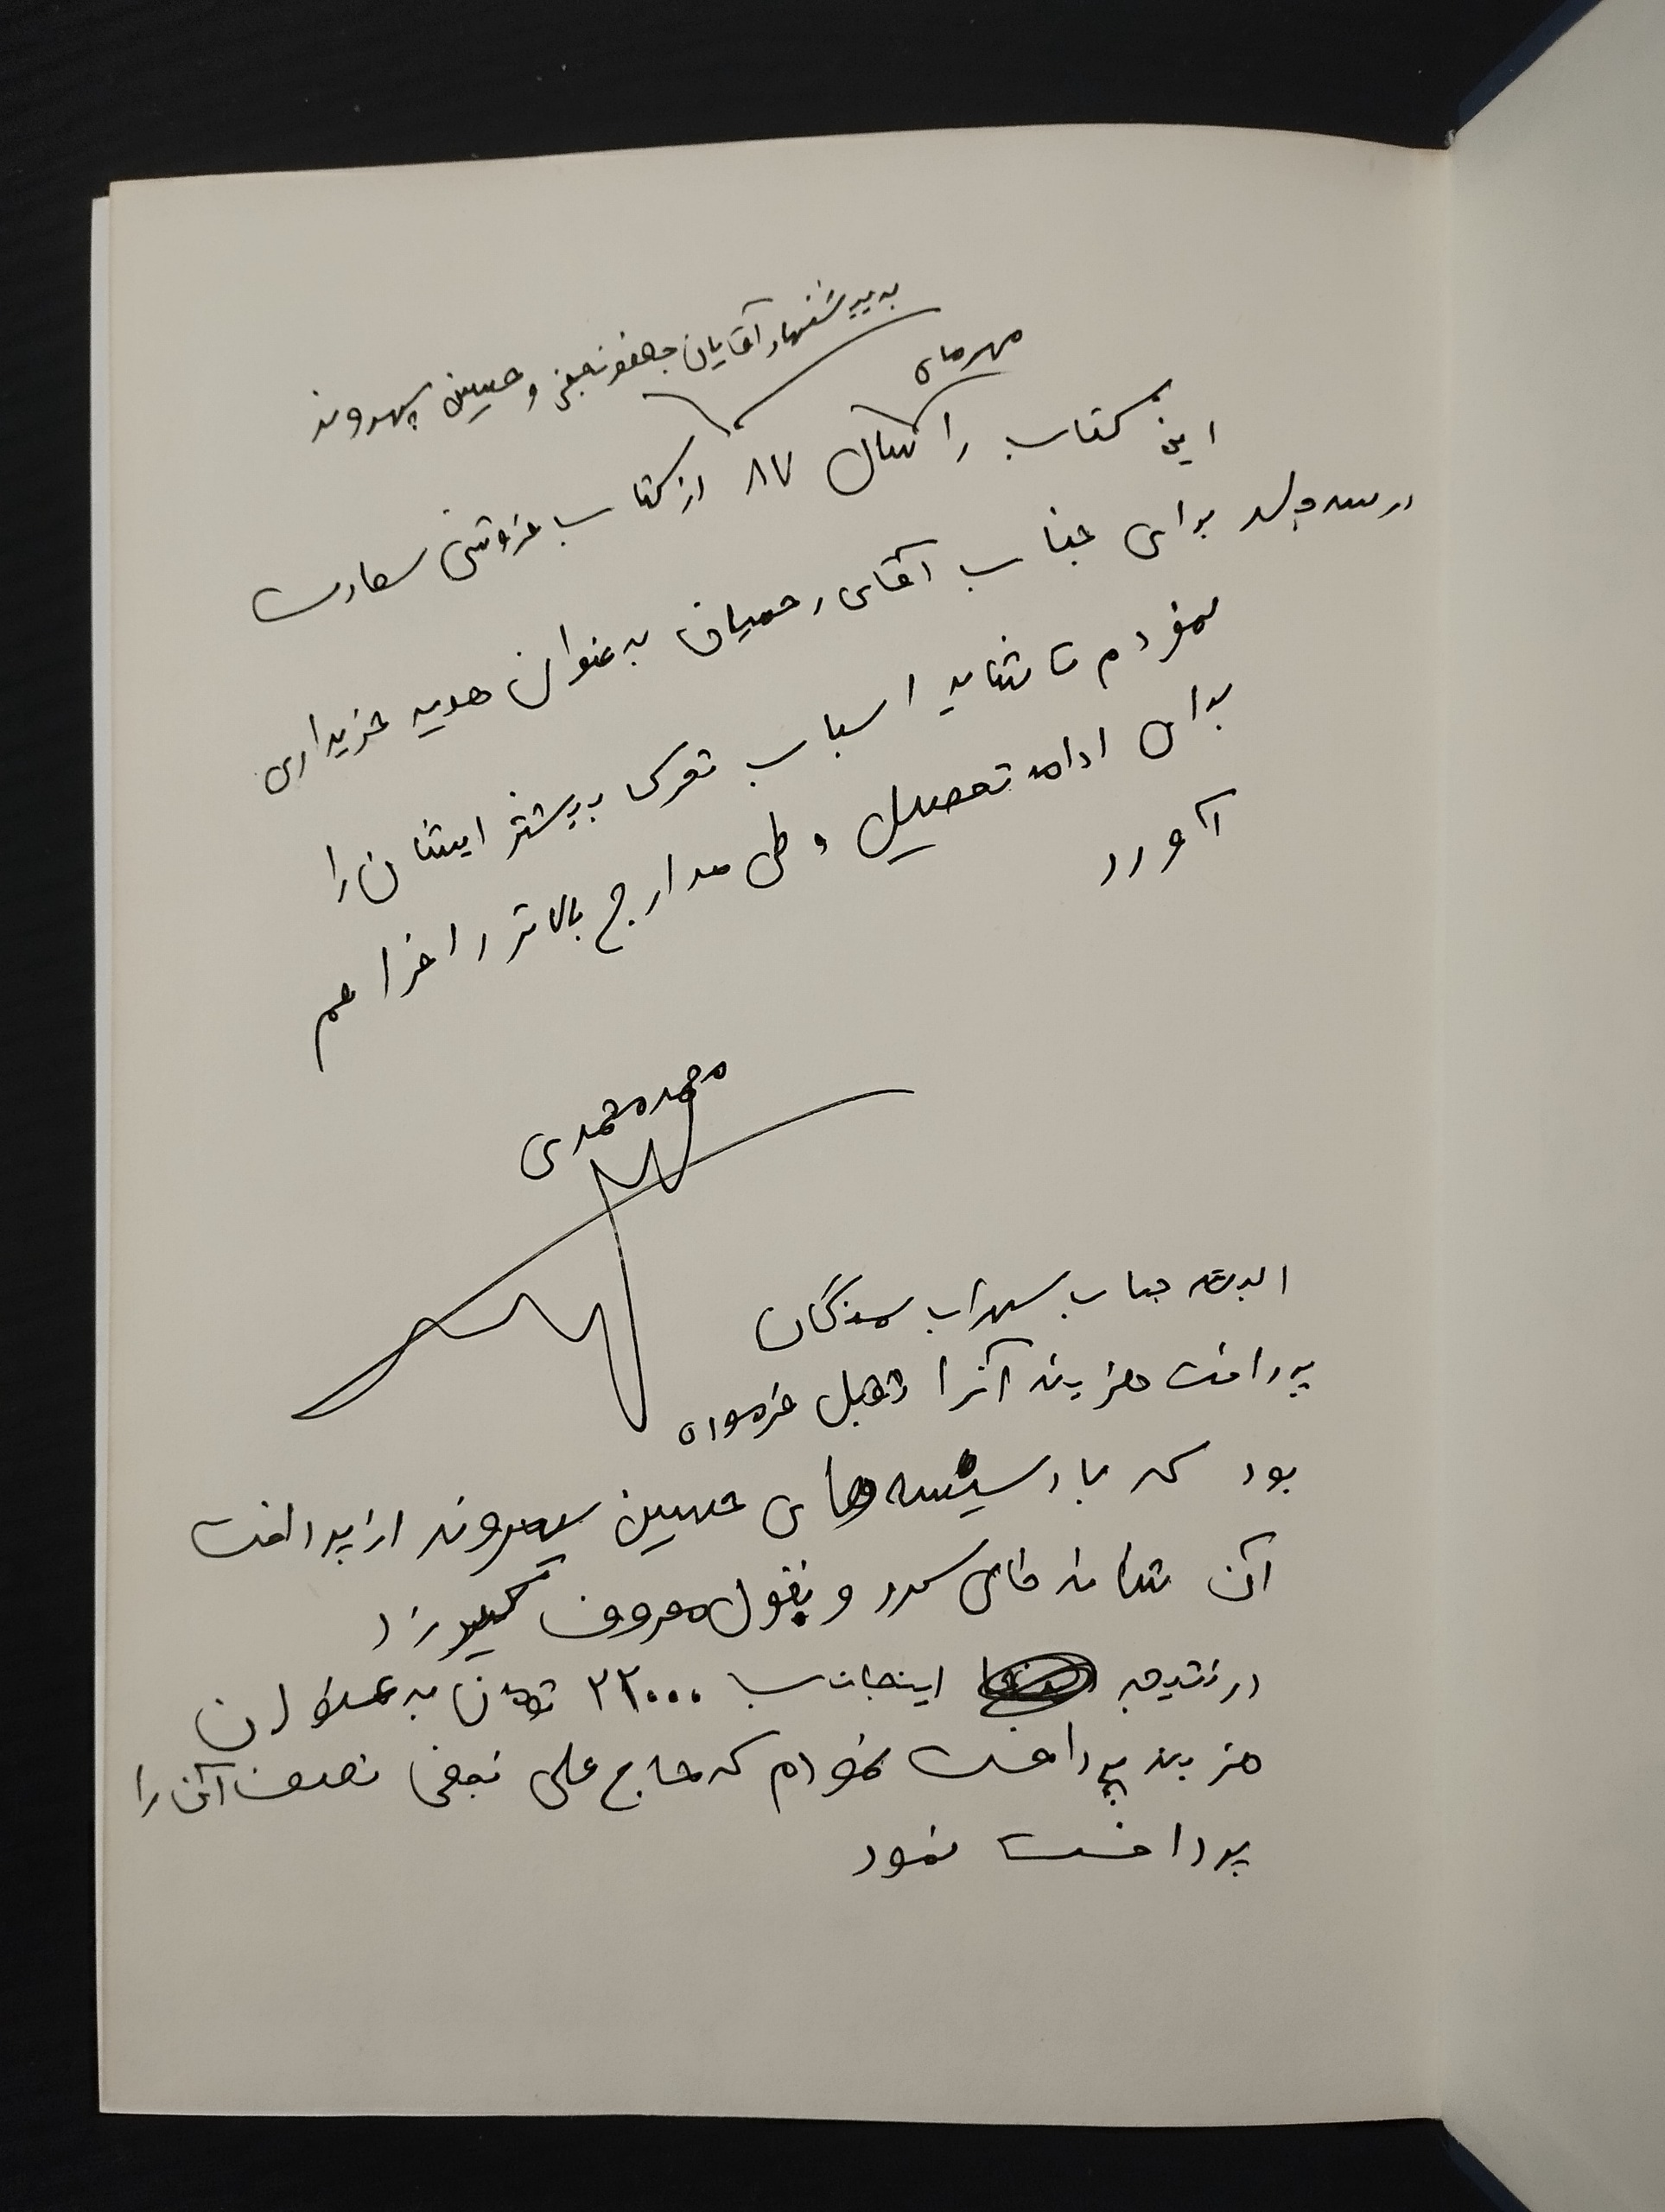 به پیشنهاد آقایان جعفر نجفی و حسین سپهروند
مهرماه
این کتاب را سال ۸۷ از کتاب فروشی سعادت
در سه جلد برای جناب آقای رحمیان به عنوان هدیه خریداری
نمودم تا شاید اسباب تحرک بیشتر ایشان را
برای ادامه تحصیل و طی مدارج بالاتر را فراهم
آورد
محمد محمدی
البته جناب سهراب سمنگان
پرداخت هزینه آنرا تقبل فرموده
بود که با دسیسه های حسین سپهروند از پرداخت
آن شانه خالی کرد و بقول معروف
در نتیجه اینجانب ۲۲۰۰۰ تومان به عنوان
هزینه پرداخت نمودم که حاج علی نجفی نصف آن را
پرداخت نمود